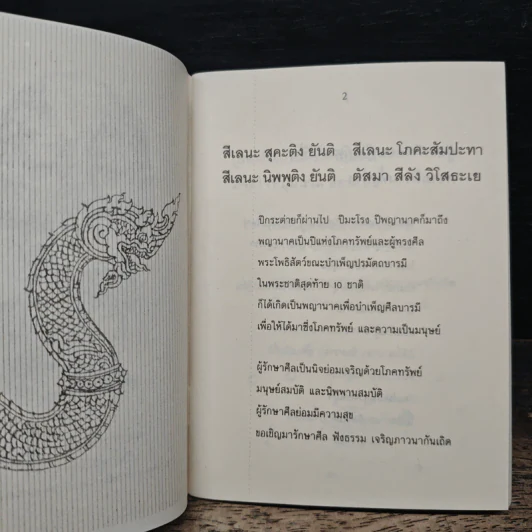 2
สีเลนะ สุคะติง ยันติ สีเลนะ โภคะสัมปะทา
สีเลนะ นิพพุติง ยันติ ตัสมา สีลัง วิโสธะเย
ปีกระต่ายก็ผ่านไป ปีมะโรง ปีพญานาคก็มาถึง
พญานาคเป็นปีแห่งโภคทรัพย์และผู้ทรงศีล
พระโพธิสัตว์ขณะบำเพ็ญปรมัตถบารมี
ในพระชาติสุดท้าย 10 ชาติ
ก็ได้เกิดเป็นพญานาคเพื่อบำเพ็ญศีลบารมี
เพื่อให้ได้มาซึ่งโภคทรัพย์ และความเป็นมนุษย์
ผู้รักษาศีลเป็นนิจย่อมเจริญด้วยโภคทรัพย์
มนุษย์สมบัติ และนิพพานสมบัติ
ผู้รักษาศีลย่อมมีความสุข
ขอเชิญมารักษาศีล ฟังธรรม เจริญภาวนากันเถิด